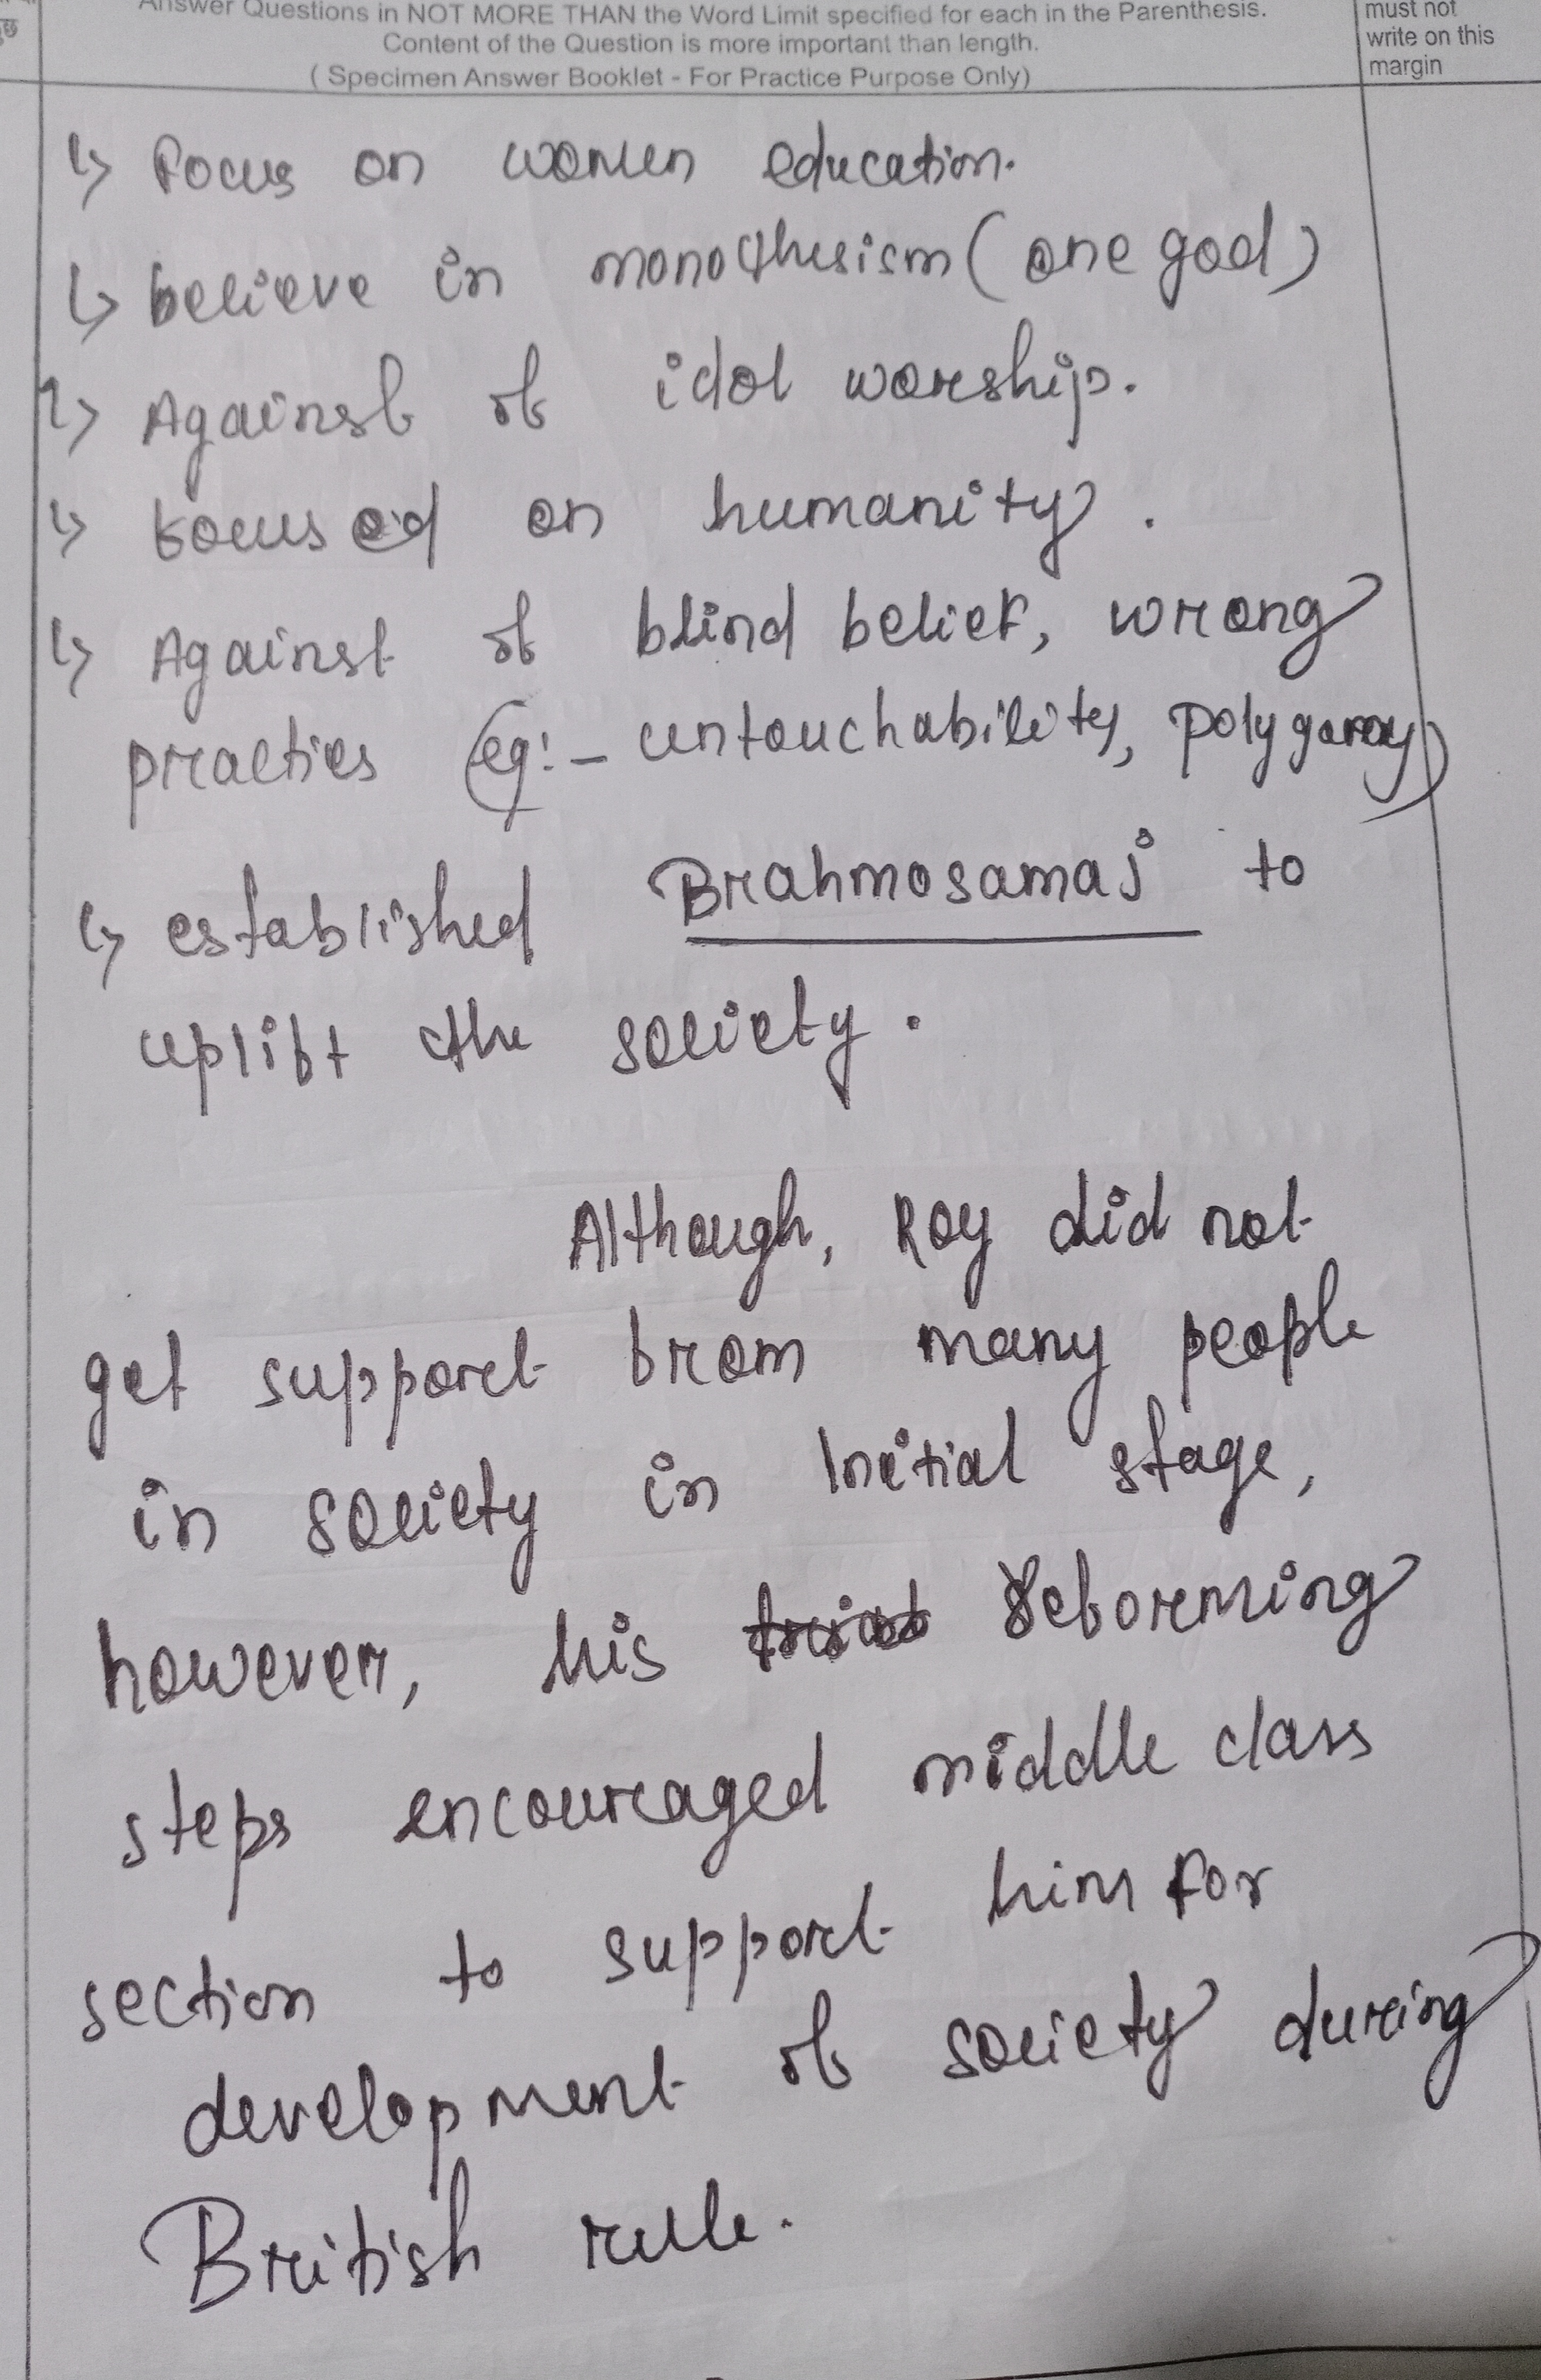 Answer Questions in NOT MORE THAN the Word Limit specified for each in the Parenthesis.
Content of the Question is more important than length.
( Specimen Answer Booklet - For Practice Purpose Only)
must not
write on this
margin
↳ Focus on women education.
↳ believe in monothesism (one god)
↳ Against of idol worship.
↳ focused on humanity.
↳ Against of blind belief, wrong
practies (eg:- untouchability, polygamy)
↳ established Brahmosamaj to
uplift the society.
Although, Roy did not
get support from many people
in society in Initial stage,
however, his reforming
steps encouraged middle class
section to support him for
development of society during
British rule.